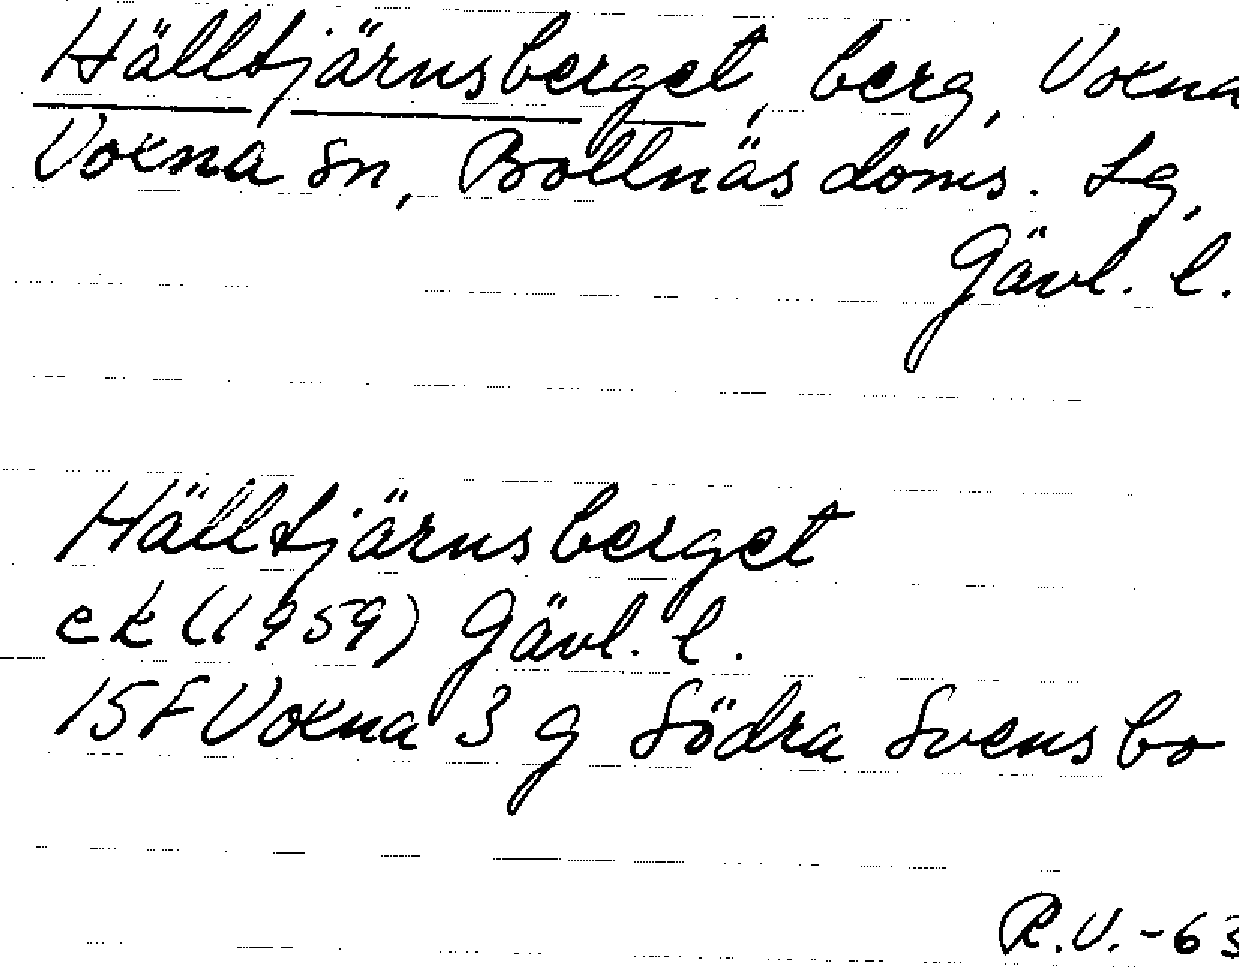 Hälltjärnsberget, berg, Voxna
Voxna sn, Bollnäs doms. Lg,
Gävl. l.
Hälltjärnsberget
ek (1959) Gävl. l.
15F Voxna 3 g Södra Svensbo
R.V.-63